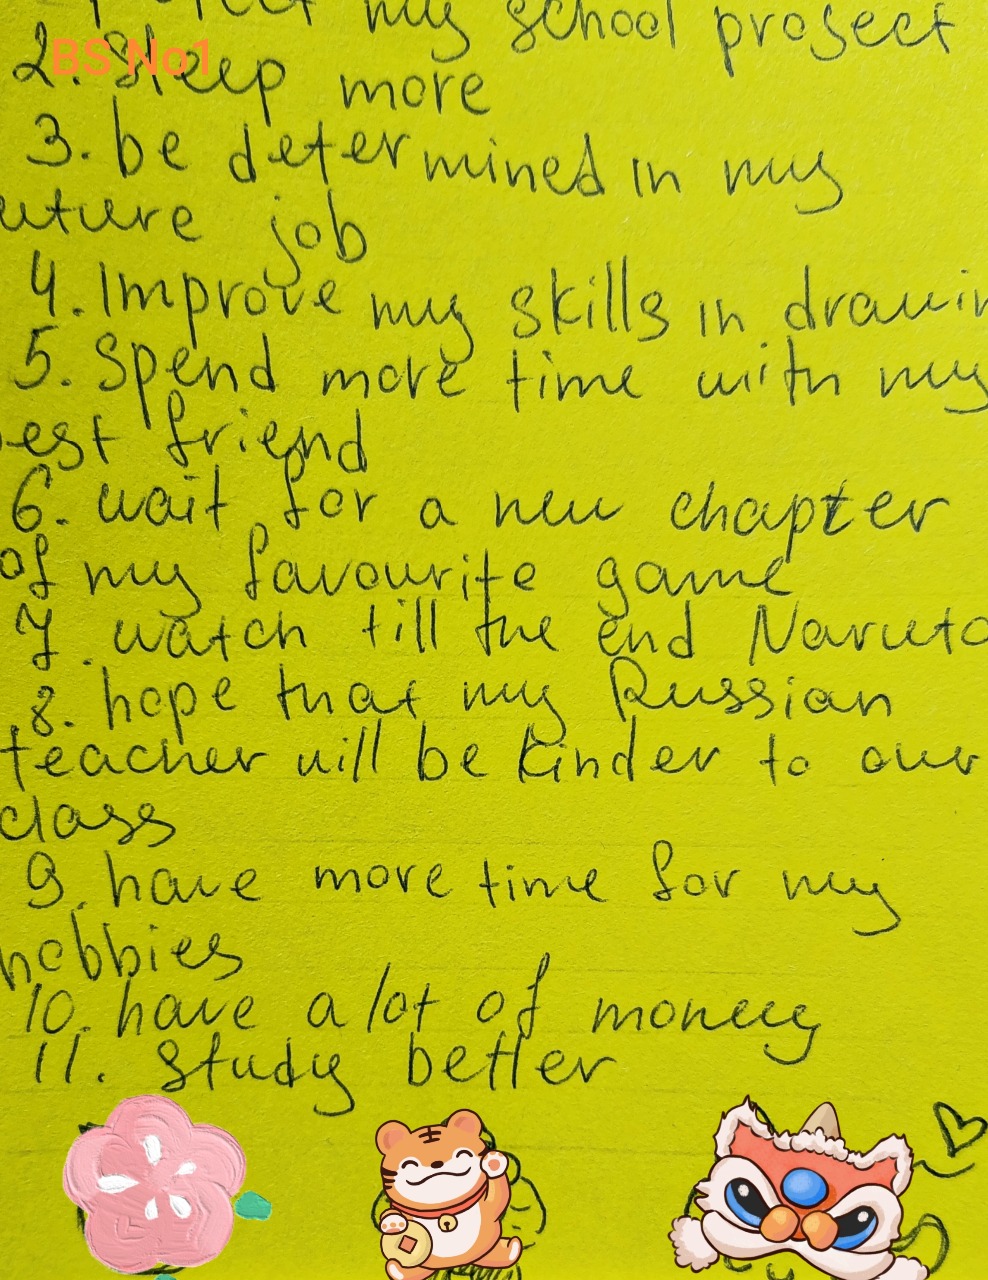 my school project
BS No1
2. Sleep more
3. be determined in my
uture job
4. Improve my skills in drawin
5. Spend more time with my
est friend
6. wait for a new chapter
of my favourite game
7. watch till the end Naruto
8. hope that my Russian
teacher will be kinder to our
class
9. have more time for my
hobbies
10. have a lot of money
11. study better